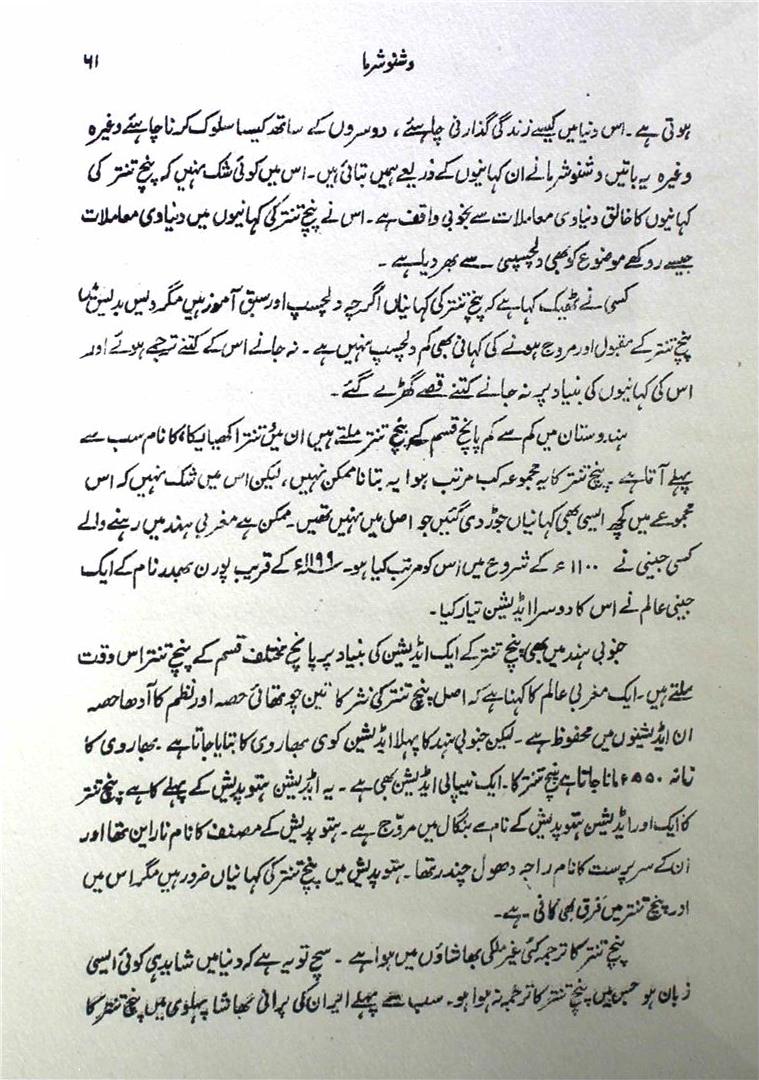 وشنو شرما ۶۱
ہوتی ہے۔ اس دنیا میں کیسے زندگی گذارنی چاہیئے، دوسروں کے ساتھ کیسا سلوک کرنا چاہئے وغیرہ
وغیرہ یہ باتیں وشنو شرما نے ان کہانیوں کے ذریعے ہمیں بتائی ہیں۔ اس میں کوئی شک نہیں کہ پنچ تنتر کی
کہانیوں کا خالق دنیاوی معاملات سے بخوبی واقف ہے۔ اس نے پنچ تنتر کی کہانیوں میں دنیاوی معاملات
جیسے روکھے موضوع کو بھی دلچسپی سے بھر دیا ہے۔
کسی نے ٹھیک کہا ہے کہ پنچ تنتر کی کہانیاں اگرچہ دلچسپ اور سبق آموز ہیں مگر دیس بدیس میں
پنچ تنتر کے مقبول اور مروج ہونے کی کہانی بھی کم دلچسپ نہیں ہے۔ نہ جانے اس کے کتنے ترجمے ہوئے اور
اس کی کہانیوں کی بنیاد پر نہ جانے کتنے قصے گھڑے گئے۔
ہندوستان میں کم سے کم پانچ قسم کے پنچ تنتر ملتے ہیں ان میں تنترا کھیایکا، کا نام سب سے
پہلے آتا ہے۔ پنچ تنتر کا یہ مجموعہ کب مرتب ہوا یہ بتانا ناممکن نہیں، لیکن اس میں شک نہیں کہ اس
مجموعے میں کچھ ایسی بھی کہانیاں جوڑ دی گئیں جو اصل میں نہیں تھیں۔ ممکن ہے مغربی ہند میں رہنے والے
کسی جینی نے ۱۱۰۰ء کے شروع میں اس کو مرتب کیا ہو۔ ۱۱۹۹ء کے قریب پورن بھدر نام کے ایک
جینی عالم نے اس کا دوسرا ایڈیشن تیار کیا۔
جنوبی ہند میں بھی پنچ تنتر کے ایک اڈیشن کی بنیاد پر پانچ مختلف قسم کے پنچ تنتر اس وقت
ملتے ہیں۔ ایک مغربی عالم کا کہنا ہے کہ اصل پنچ تنتر کی نثر کا تین چوتھائی حصہ اور نظم کا آدھا حصہ
ان ایڈیشنوں میں محفوظ ہے۔ لیکن جنوبی ہند کا پہلا ایڈیشن کوی بھاروی کا بتایا جاتا ہے۔ بھاروی کا
زمانہ ۵۵۰ء مانا جاتا ہے پنچ تنتر کا۔ ایک نیپالی ایڈیشن بھی ہے۔ یہ ایڈیشن ہتوپدیش کے پہلے کا ہے۔ پنچ تنتر
کا ایک اور ایڈیشن ہتوپدیش کے نام سے بنگال میں مروّج ہے۔ ہتوپدیش کے مصنف کا نام نارائن تھا اور
ان کے سرپرست کا نام راجہ دھول چندر تھا۔ ہتوپدیش میں پنچ تنتر کی کہانیاں ضرور ہیں مگر اس میں
اور پنچ تنتر میں فرق بھی کافی ہے۔
پنچ تنتر کا ترجمہ کئی غیر ملکی بھاشاؤں میں ہوا ہے۔ سچ تو یہ ہے کہ دنیا میں شاید ہی کوئی ایسی
زبان ہو جس میں پنچ تنتر کا ترجمہ نہ ہوا ہو۔ سب سے پہلے ایران کی پرانی بھاشا پہلوی میں پنچ تنتر کا